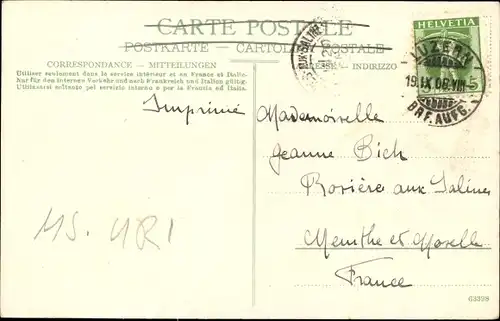 CARTE POSTALE
POSTKARTE - CARTOLINA POSTALE
CORRESPONDANCE - MITTEILUNGEN
INDIRIZZO
Utiliser seulement dans le service intérieur et en France et Italie.
Nur für den internen Verkehr und nach Frankreich und Italien gültig.
Utilizzarsi soltanto pel servizio interno e per la Francia ed Italia.
HELVETIA
5
LUZERN
19.IX.06.VIII
BRF.AUFG.
Imprimé
Mademoiselle
Jeanne Bich
Rosière aux Salines
Menthe et Moselle
France
MS. URI
63398